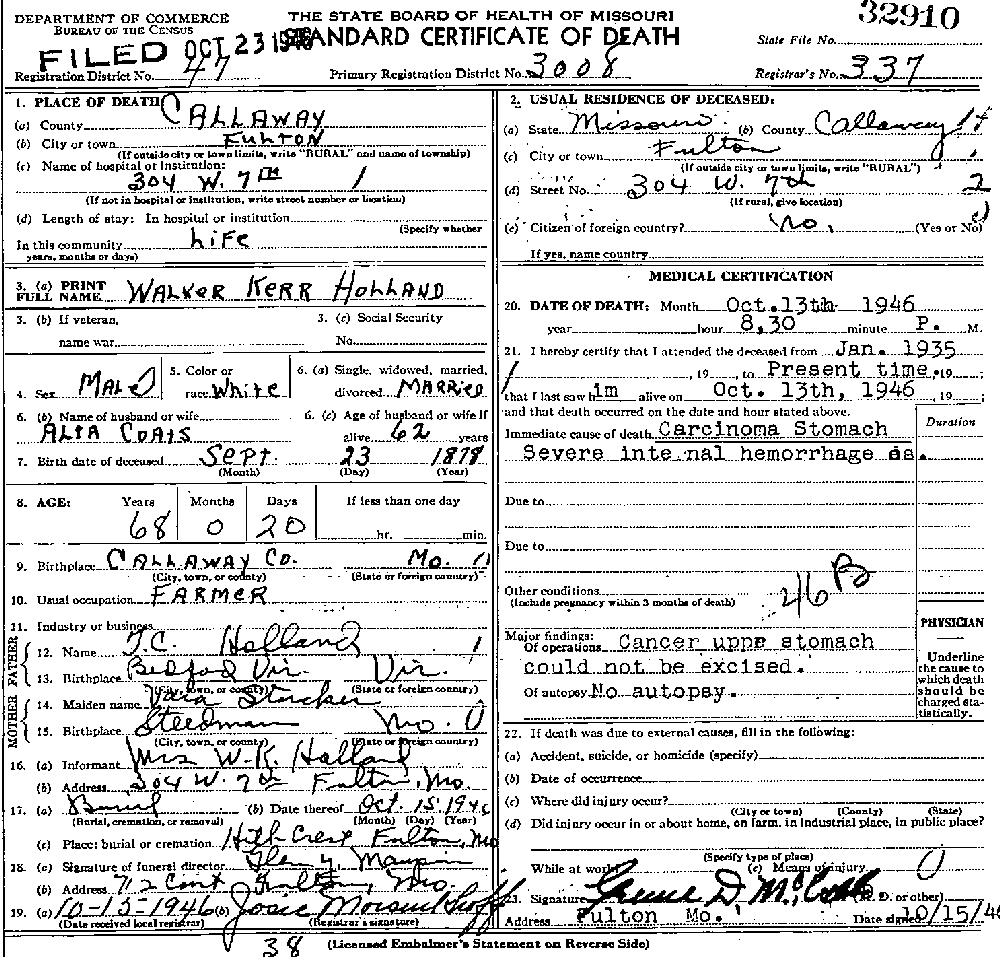 DEPARTMENT OF COMMERCE
BUREAU OF THE CENSUS
THE STATE BOARD OF HEALTH OF MISSOURI
STANDARD CERTIFICATE OF DEATH
32910
State File No.
FILED OCT 23 1946
Registration District No. 47
Primary Registration District No. 3008
Registrar's No. 337
1. PLACE OF DEATH
(a) County CALLAWAY
(b) City or town FULTON
(If outside city or town limits, write "RURAL" and name of township)
(c) Name of hospital or institution:
304 W. 7TH 1
(If not in hospital or institution, write street number or location)
(d) Length of stay: In hospital or institution
(Specify whether
In this community LIFE
years, months or days)
3. (a) PRINT FULL NAME WALKER KERR HOLLAND
3. (b) If veteran, name war
3. (c) Social Security No.
4. Sex MALE
5. Color or race White
6. (a) Single, widowed, married, divorced MARRIED
6. (b) Name of husband or wife ALTA COATS
6. (c) Age of husband or wife if alive 62 years
7. Birth date of deceased Sept. 23 1878
(Month) (Day) (Year)
8. AGE: Years Months Days If less than one day
68 0 20 hr. min.
9. Birthplace CALLAWAY CO. MO.
(City, town, or county) (State or foreign country)
10. Usual occupation FARMER
11. Industry or business
FATHER
12. Name T.C. Holland
13. Birthplace Bedford Vir. Vir.
(City, town, or county) (State or foreign country)
MOTHER
14. Maiden name
15. Birthplace Steedman Mo.
(City, town, or county) (State or foreign country)
16. (a) Informant Mrs W-K. Holland
(b) Address 304 W. 7th Fulton, Mo.
17. (a) Burial (b) Date thereof Oct. 15. 1946
(Burial, cremation, or removal) (Month) (Day) (Year)
(c) Place: burial or cremation Fulton, Mo
18. (a) Signature of funeral director Maupin
(b) Address Fulton, Mo.
19. (a) 10-15-1946 (b) Josie
(Date received local registrar) (Registrar's signature)
2. USUAL RESIDENCE OF DECEASED:
(a) State Missouri (b) County Callaway
(c) City or town Fulton
(If outside city or town limits, write "RURAL")
(d) Street No. 304 W. 7th 2
(If rural, give location)
(e) Citizen of foreign country? No. (Yes or No)
If yes, name country
MEDICAL CERTIFICATION
20. DATE OF DEATH: Month Oct. 13th 1946
year hour 8,30 minute P. M.
21. I hereby certify that I attended the deceased from Jan. 1935
, 19 , to Present time, 19 ;
that I last saw h im alive on Oct. 13th, 1946 , 19 ;
and that death occurred on the date and hour stated above.
Duration
Immediate cause of death Carcinoma Stomach
Severe inte nal hemorrhage as.
Due to
Due to
46 B
Other conditions
(Include pregnancy within 3 months of death)
PHYSICIAN
Underline the cause to which death should be charged statistically.
Major findings:
Of operations Cancer uppe stomach
could not be excised.
Of autopsy No autopsy.
22. If death was due to external causes, fill in the following:
(a) Accident, suicide, or homicide (specify)
(b) Date of occurrence
(c) Where did injury occur?
(City or town) (County) (State)
(d) Did injury occur in or about home, on farm, in industrial place, in public place?
(Specify type of place)
While at work (e) Means of injury 0
23. Signature (M. D. or other)
Address Fulton Mo. Date signed 10/15/46
38
(Licensed Embalmer's Statement on Reverse Side)